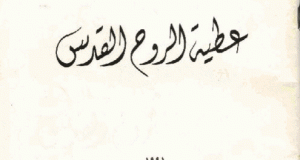 عطية الروح القدس